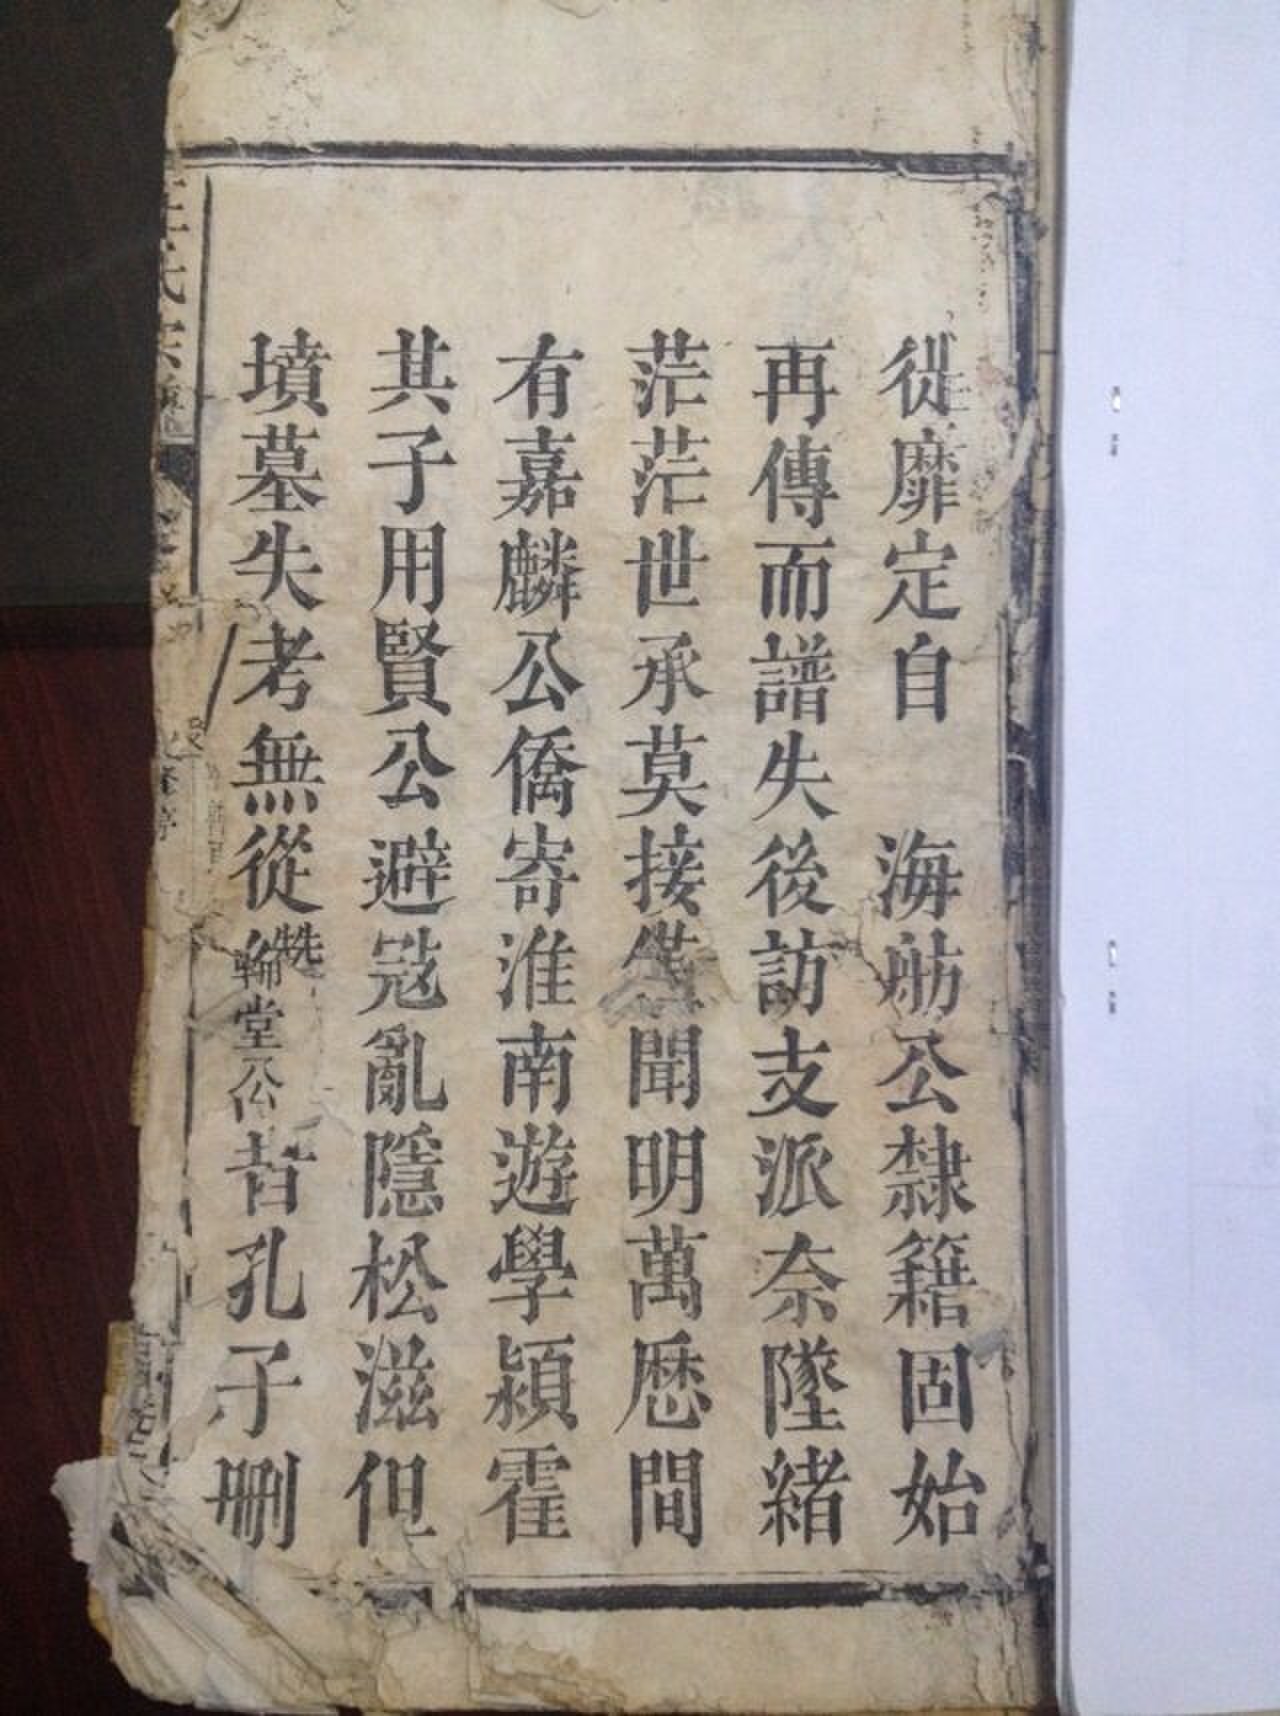 從靡定自　海舫公隸籍固始
再傳而譜失後訪支派奈墜緒
茫茫世承莫接僅聞明萬厯間
有嘉麟公僑寄淮南遊學潁霍
其子用賢公避寇亂隱松滋但
墳墓失考無從 堂公昔孔子刪
汪氏宗譜